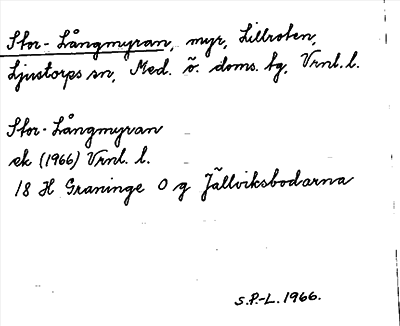 Stor-Långmyran, myr, Lillroten,
Ljustorps sn, Med. ö. doms. tg, Vrnl. l.
Stor-Långmyran
ek (1966) Vrnl. l.
18 H Graninge 0 g Jällviksbodarna
S.P.-L. 1966.